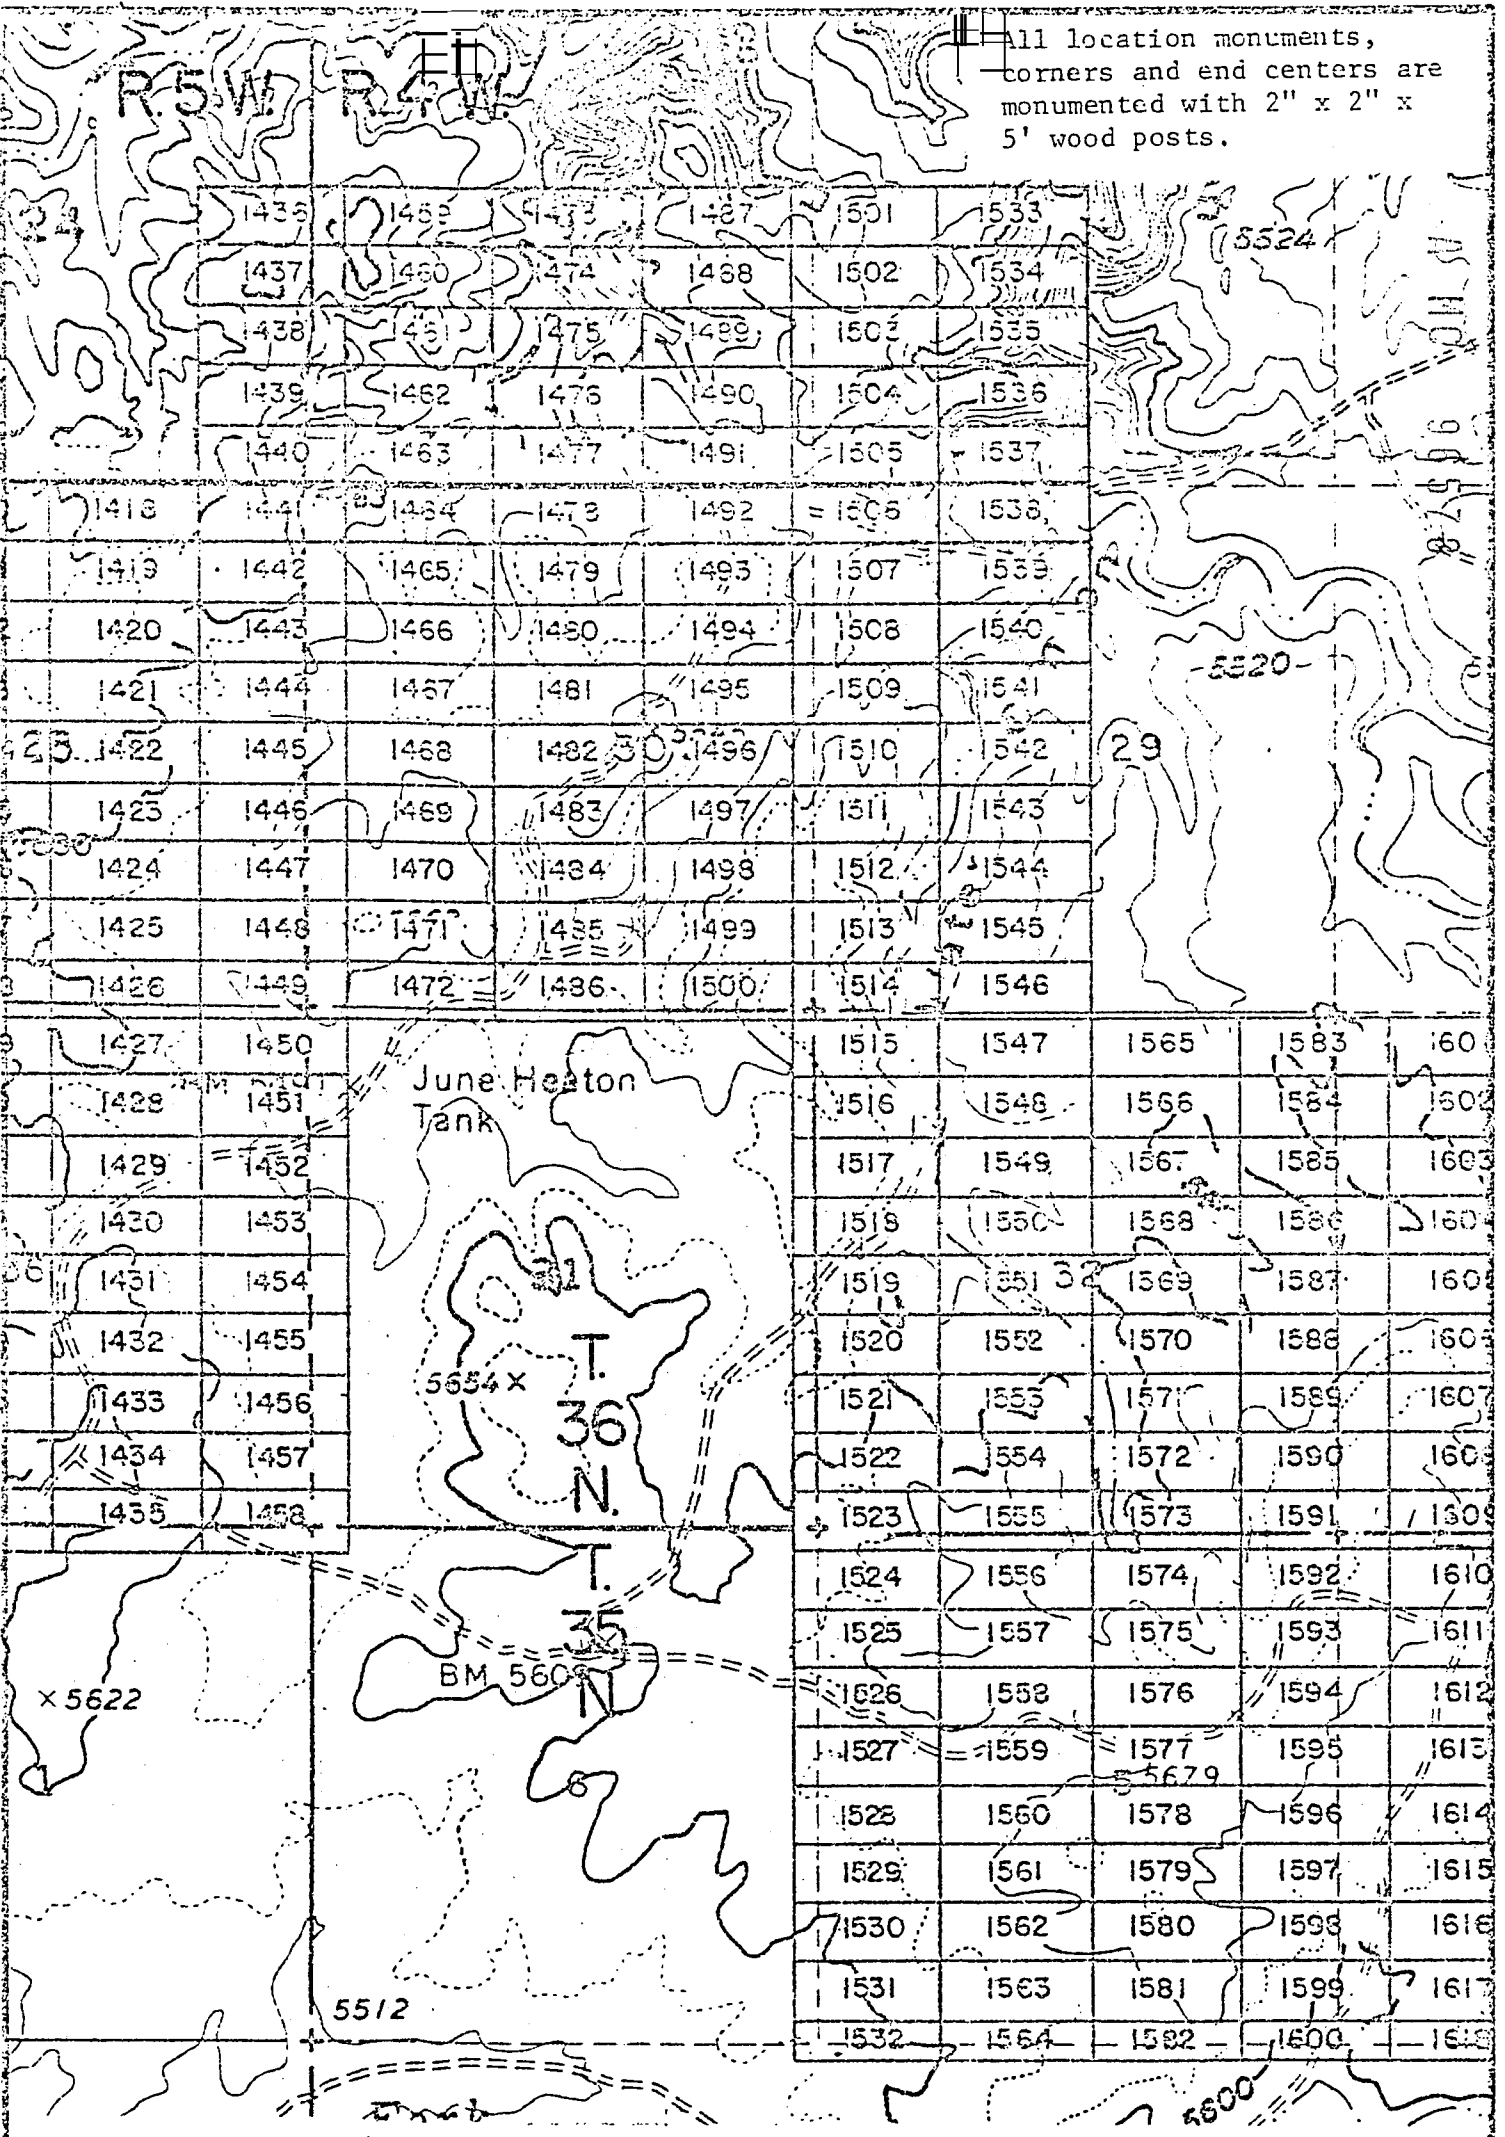 All location monuments,
corners and end centers are
monumented with 2" x 2" x
5' wood posts.
R.5W. R.4W.
24 1436 1459 1473 1487 1501 1533 5524
1437 1460 1474 1488 1502 1534
1438 1461 1475 1489 1503 1535
1439 1462 1476 1490 1504 1536
1440 1463 1477 1491 1505 1537
1418 1441 1464 1478 1492 1506 1538
1419 1442 1465 1479 1493 1507 1539
1420 1443 1466 1480 1494 1508 1540
1421 1444 1467 1481 1495 1509 1541 5520
1422 1445 1468 1482 30 1496 1510 1542 29
1423 1446 1469 1483 1497 1511 1543
1424 1447 1470 1484 1498 1512 1544
1425 1448 1471 1485 1499 1513 1545
1426 1449 1472 1486 1500 1514 1546
1427 1450 1515 1547 1565 1583
June Heaton
Tank
1428 1451 1516 1548 1566 1584 1602
1429 1452 1517 1549 1567 1585 1603
1430 1453 1518 1550 1568 1586
1431 1454 31 1519 1551 32 1569 1587
1432 1455 T. 1520 1552 1570 1588
5654
1433 1456 36 1521 1553 1571 1589 1607
1434 1457 N. 1522 1554 1572 1590
1435 1458 1523 1555 1573 1591 1609
T. 1524 1556 1574 1592 1610
35 1525 1557 1575 1593 1611
×5622 BM 5609 N 1526 1558 1576 1594 1612
1527 1559 1577 1595 1613
1 6 5 5679
1528 1560 1578 1596 1614
1529 1561 1579 1597 1615
1530 1562 1580 1598 1616
1531 1563 1581 1599 1617
5512
1532 1564 1582 1600 1618
5600